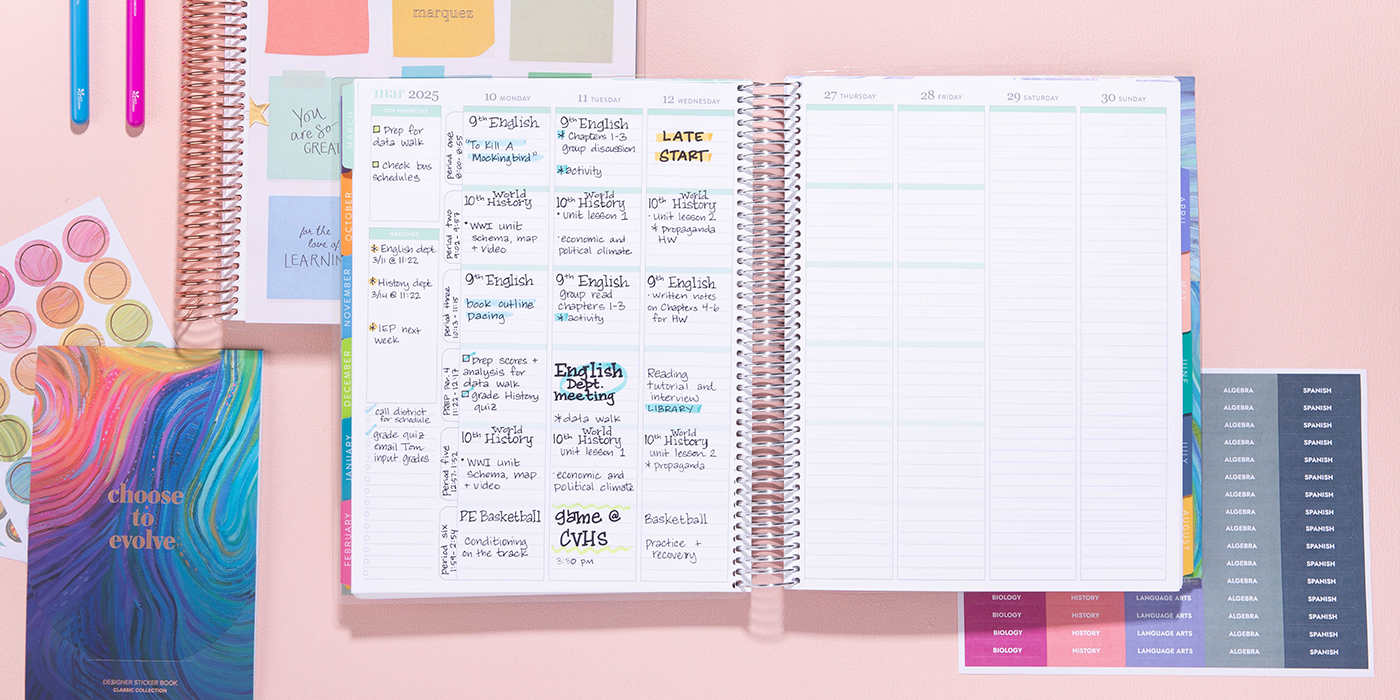 marquez
You
are so
GREAT
for the
love of
LEARNIN
choose
to
evolve
DESIGNER STICKER BOOK
CLASSIC COLLECTION
MARCH
OCTOBER
NOVEMBER
DECEMBER
JANUARY
FEBRUARY
mar 2025
TOP PRIORITIES
Prep for
data walk
Check bus
schedules
MEETINGS
* English dept.
3/11 @ 11:22
* History dept.
3/14 @ 11:22
* IEP next
week
call district
for schedule
grade quiz
email Tom
input grades
period one
8:00-8:55
period two
9:02-9:57
period three
10:13-11:15
PREP per. 4
11:22-12:17
Period five
12:57-1:52
period six
1:59-2:54
10 MONDAY
9th English
"To Kill A
Mockingbird"
10th World
History
• WWI unit
schema, map
+ video
9th English
book outline
pacing
Prep scores +
analysis for
data walk
grade History
quiz
10th World
History
• WWI unit
schema, map
+ video
PE Basketball
Conditioning
on the track
11 TUESDAY
9th English
* Chapters 1-3
group discussion
* activity
10th World
History
• unit lesson 1
• economic and
political climate
9th English
group read
chapters 1-3
* activity
English
Dept.
meeting
* data walk
10th World
History
unit lesson 1
• economic and
political climate
game @
CVHS
3:30 pm
12 WEDNESDAY
LATE
START
10th World
History
• unit lesson 2
* propaganda
HW
9th English
• written notes
on Chapters 4-6
for HW
Reading
tutorial and
interview
LIBRARY
10th World
History
unit lesson 2
* propaganda
Basketball
practice +
recovery
27 THURSDAY
28 FRIDAY
29 SATURDAY
30 SUNDAY
APRIL
MAY
JUNE
JULY
AUGUST
ALGEBRA SPANISH
ALGEBRA SPANISH
ALGEBRA SPANISH
ALGEBRA SPANISH
ALGEBRA SPANISH
ALGEBRA SPANISH
ALGEBRA SPANISH
ALGEBRA SPANISH
ALGEBRA SPANISH
ALGEBRA SPANISH
ALGEBRA SPANISH
ALGEBRA SPANISH
BIOLOGY HISTORY LANGUAGE ARTS ALGEBRA SPANISH
BIOLOGY HISTORY LANGUAGE ARTS ALGEBRA SPANISH
BIOLOGY HISTORY LANGUAGE ARTS ALGEBRA SPANISH
BIOLOGY HISTORY LANGUAGE ARTS ALGEBRA SPANISH